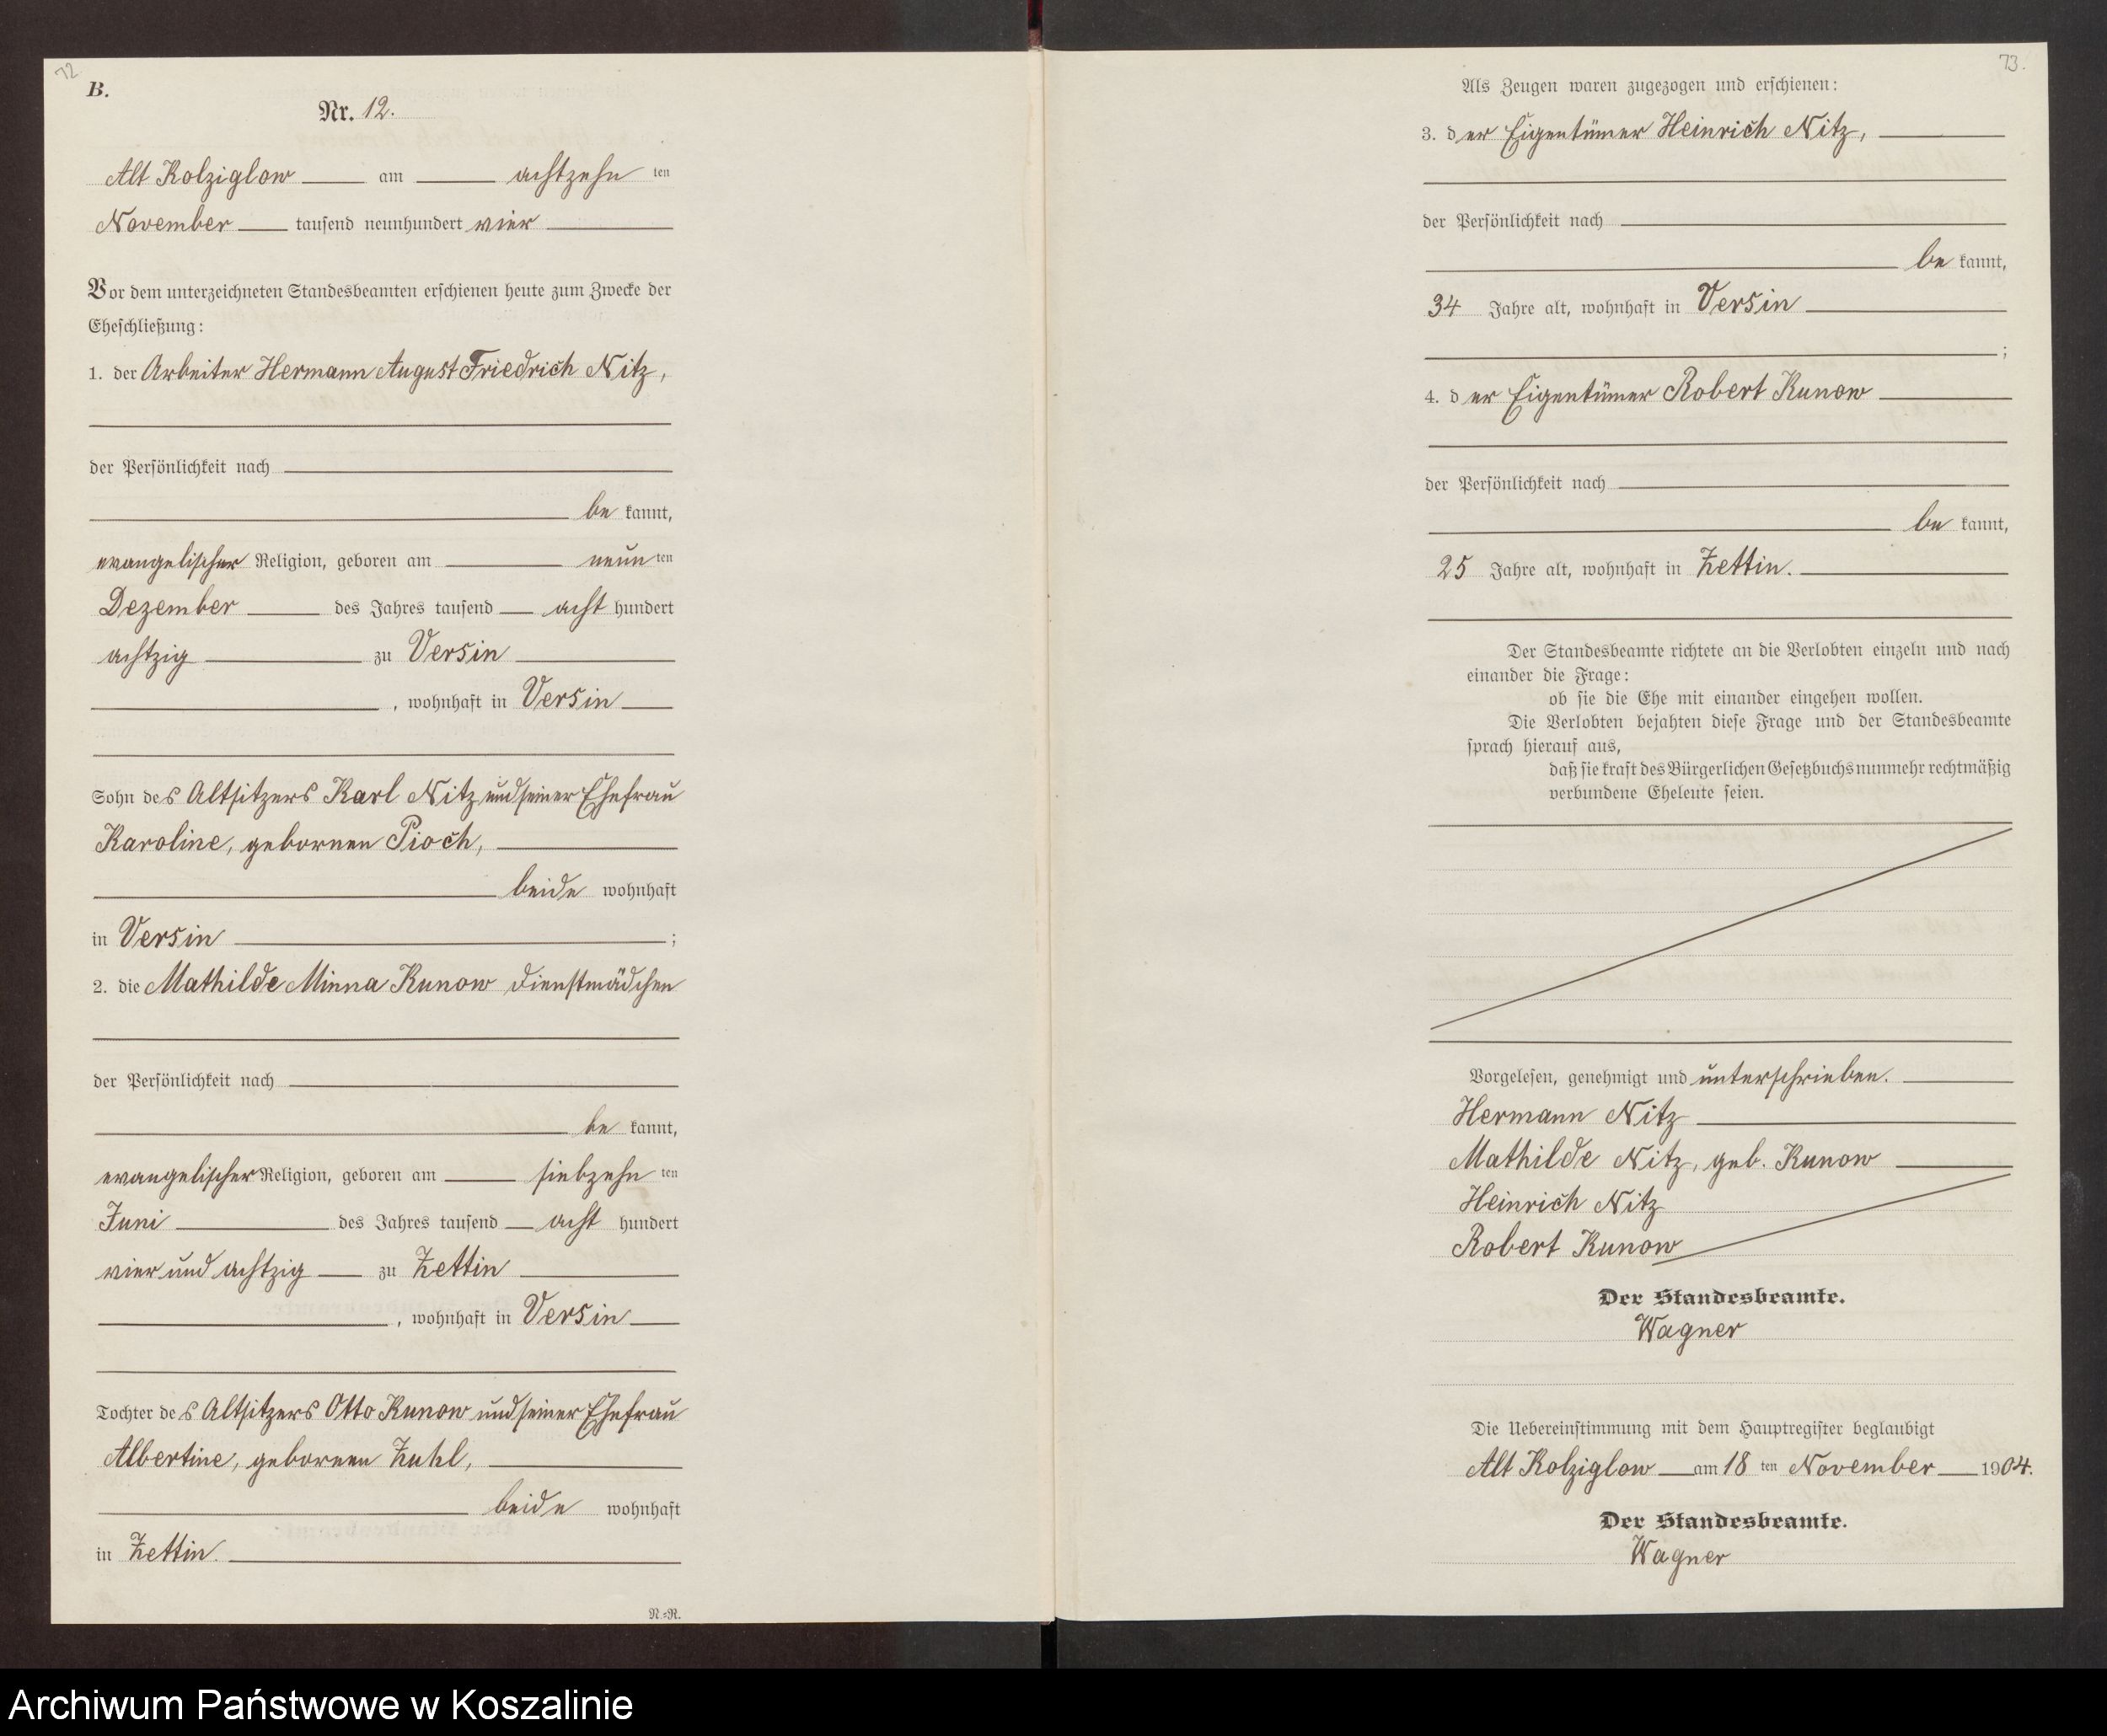 72
B.
Nr. 12.
Alt Kolziglow am achtzehn ten
November tausend neunhundert vier
Vor dem unterzeichneten Standesbeamten erschienen heute zum Zwecke der
Eheschließung:
1. der Arbeiter Hermann August Friedrich Nitz,
der Persönlichkeit nach
be kannt,
evangelischer Religion, geboren am neun ten
Dezember des Jahres tausend acht hundert
achtzig zu Versin
, wohnhaft in Versin
Sohn des Altsitzers Karl Nitz und seiner Ehefrau
Karoline, gebornen Pioch,
beide wohnhaft
in Versin ;
2. die Mathilde Minna Kunow Dienstmädchen
der Persönlichkeit nach
be kannt,
evangelischer Religion, geboren am siebzehn ten
Juni des Jahres tausend acht hundert
vier und achtzig zu Zettin
, wohnhaft in Versin
Tochter des Altsitzers Otto Kunow und seiner Ehefrau
Albertine, gebornen Zuhl,
beide wohnhaft
in Zettin.
N.=R.
73.
Als Zeugen waren zugezogen und erschienen:
3. der Eigentümer Heinrich Nitz,
der Persönlichkeit nach
be kannt,
34 Jahre alt, wohnhaft in Versin
;
4. der Eigentümer Robert Kunow
der Persönlichkeit nach
be kannt,
25 Jahre alt, wohnhaft in Zettin.
Der Standesbeamte richtete an die Verlobten einzeln und nach
einander die Frage:
ob sie die Ehe mit einander eingehen wollen.
Die Verlobten bejahten diese Frage und der Standesbeamte
sprach hierauf aus,
daß sie kraft des Bürgerlichen Gesetzbuchs nunmehr rechtmäßig
verbundene Eheleute seien.
Vorgelesen, genehmigt und unterschrieben.
Hermann Nitz
Mathilde Nitz, geb. Kunow
Heinrich Nitz
Robert Kunow
Der Standesbeamte.
Wagner
Die Uebereinstimmung mit dem Hauptregister beglaubigt
Alt Kolziglow am 18 ten November 1904.
Der Standesbeamte.
Wagner
Archiwum Państwowe w Koszalinie